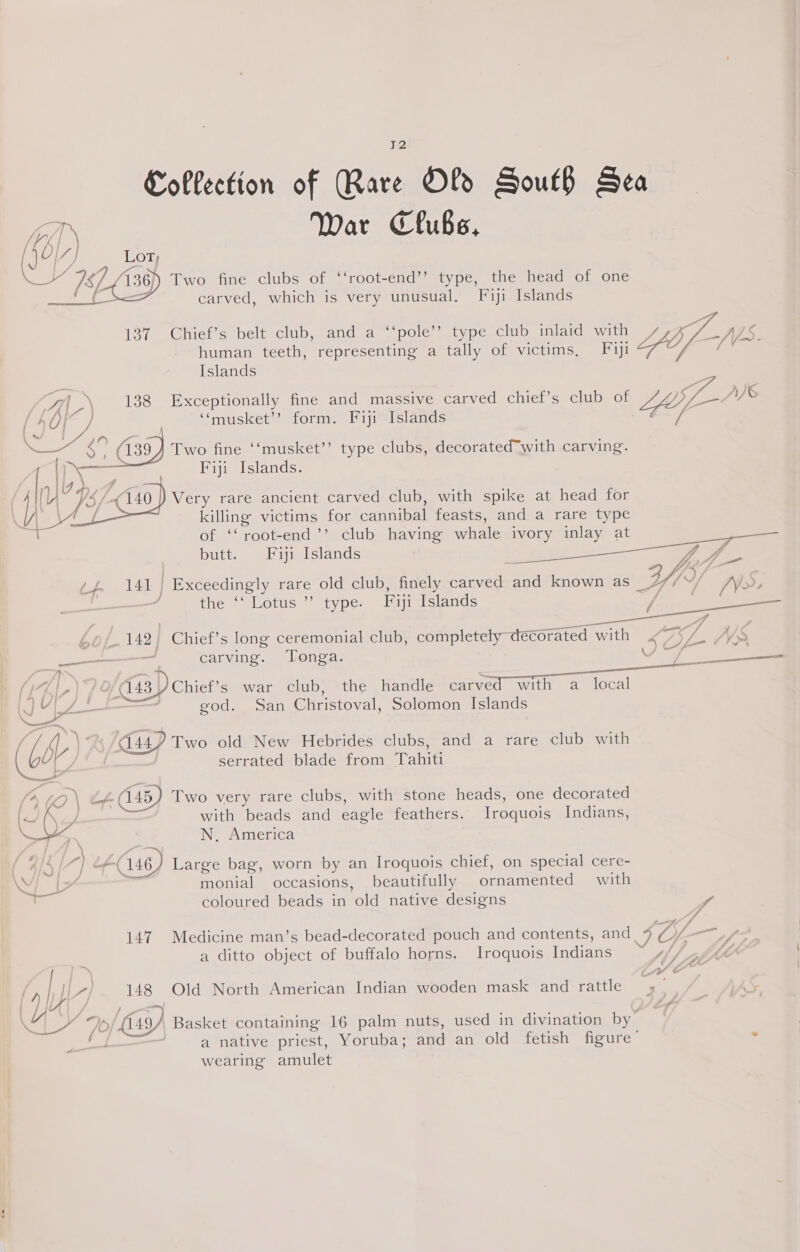 12
Collection of Rare Old South Sea
War Clubs.
Lot
136 Two fine clubs of “root-end” type, the head of one
carved, which is very unusual. Fiji Islands
137 Chief's belt club, and a “pole” type club inlaid with
human teeth, representing a tally of victims, Fiji
Islands
138 Exceptionally fine and massive carved chief's club of
“musket” form. Fiji Islands
139 Two fine “musket” type clubs, decorated with carving.
Fiji Islands.
140 Very rare ancient carved club, with spike at head for
killing victims for cannibal feasts, and a rare type
of “root-end” club having whale ivory inlay at
butt. Fiji Islands
141 Exceedingly rare old club, finely carved and known as
the “Lotus” type. Fiji Islands
142 Chief's long ceremonial club, completely decorated with
carving. Tonga.
143 Chief's war club, the handle carved with a local
god. San Christoval, Solomon Islands
144 Two old New Hebrides clubs, and a rare club with
serrated blade from Tahiti
145 Two very rare clubs, with stone heads, one decorated
with beads and eagle feathers. Iroquois Indians,
N. America
146 Large bag, worn by an Iroquois chief, on special cere-
monial occasions, beautifully ornamented with
coloured beads in old native designs
147 Medicine man's bead-decorated pouch and contents, and
a ditto object of buffalo horns. Iroquois Indians
148 Old North American Indian wooden mask and rattle
149 Basket containing 16 palm nuts, used in divination by
a native priest, Yoruba; and an old fetish figure
wearing amulet